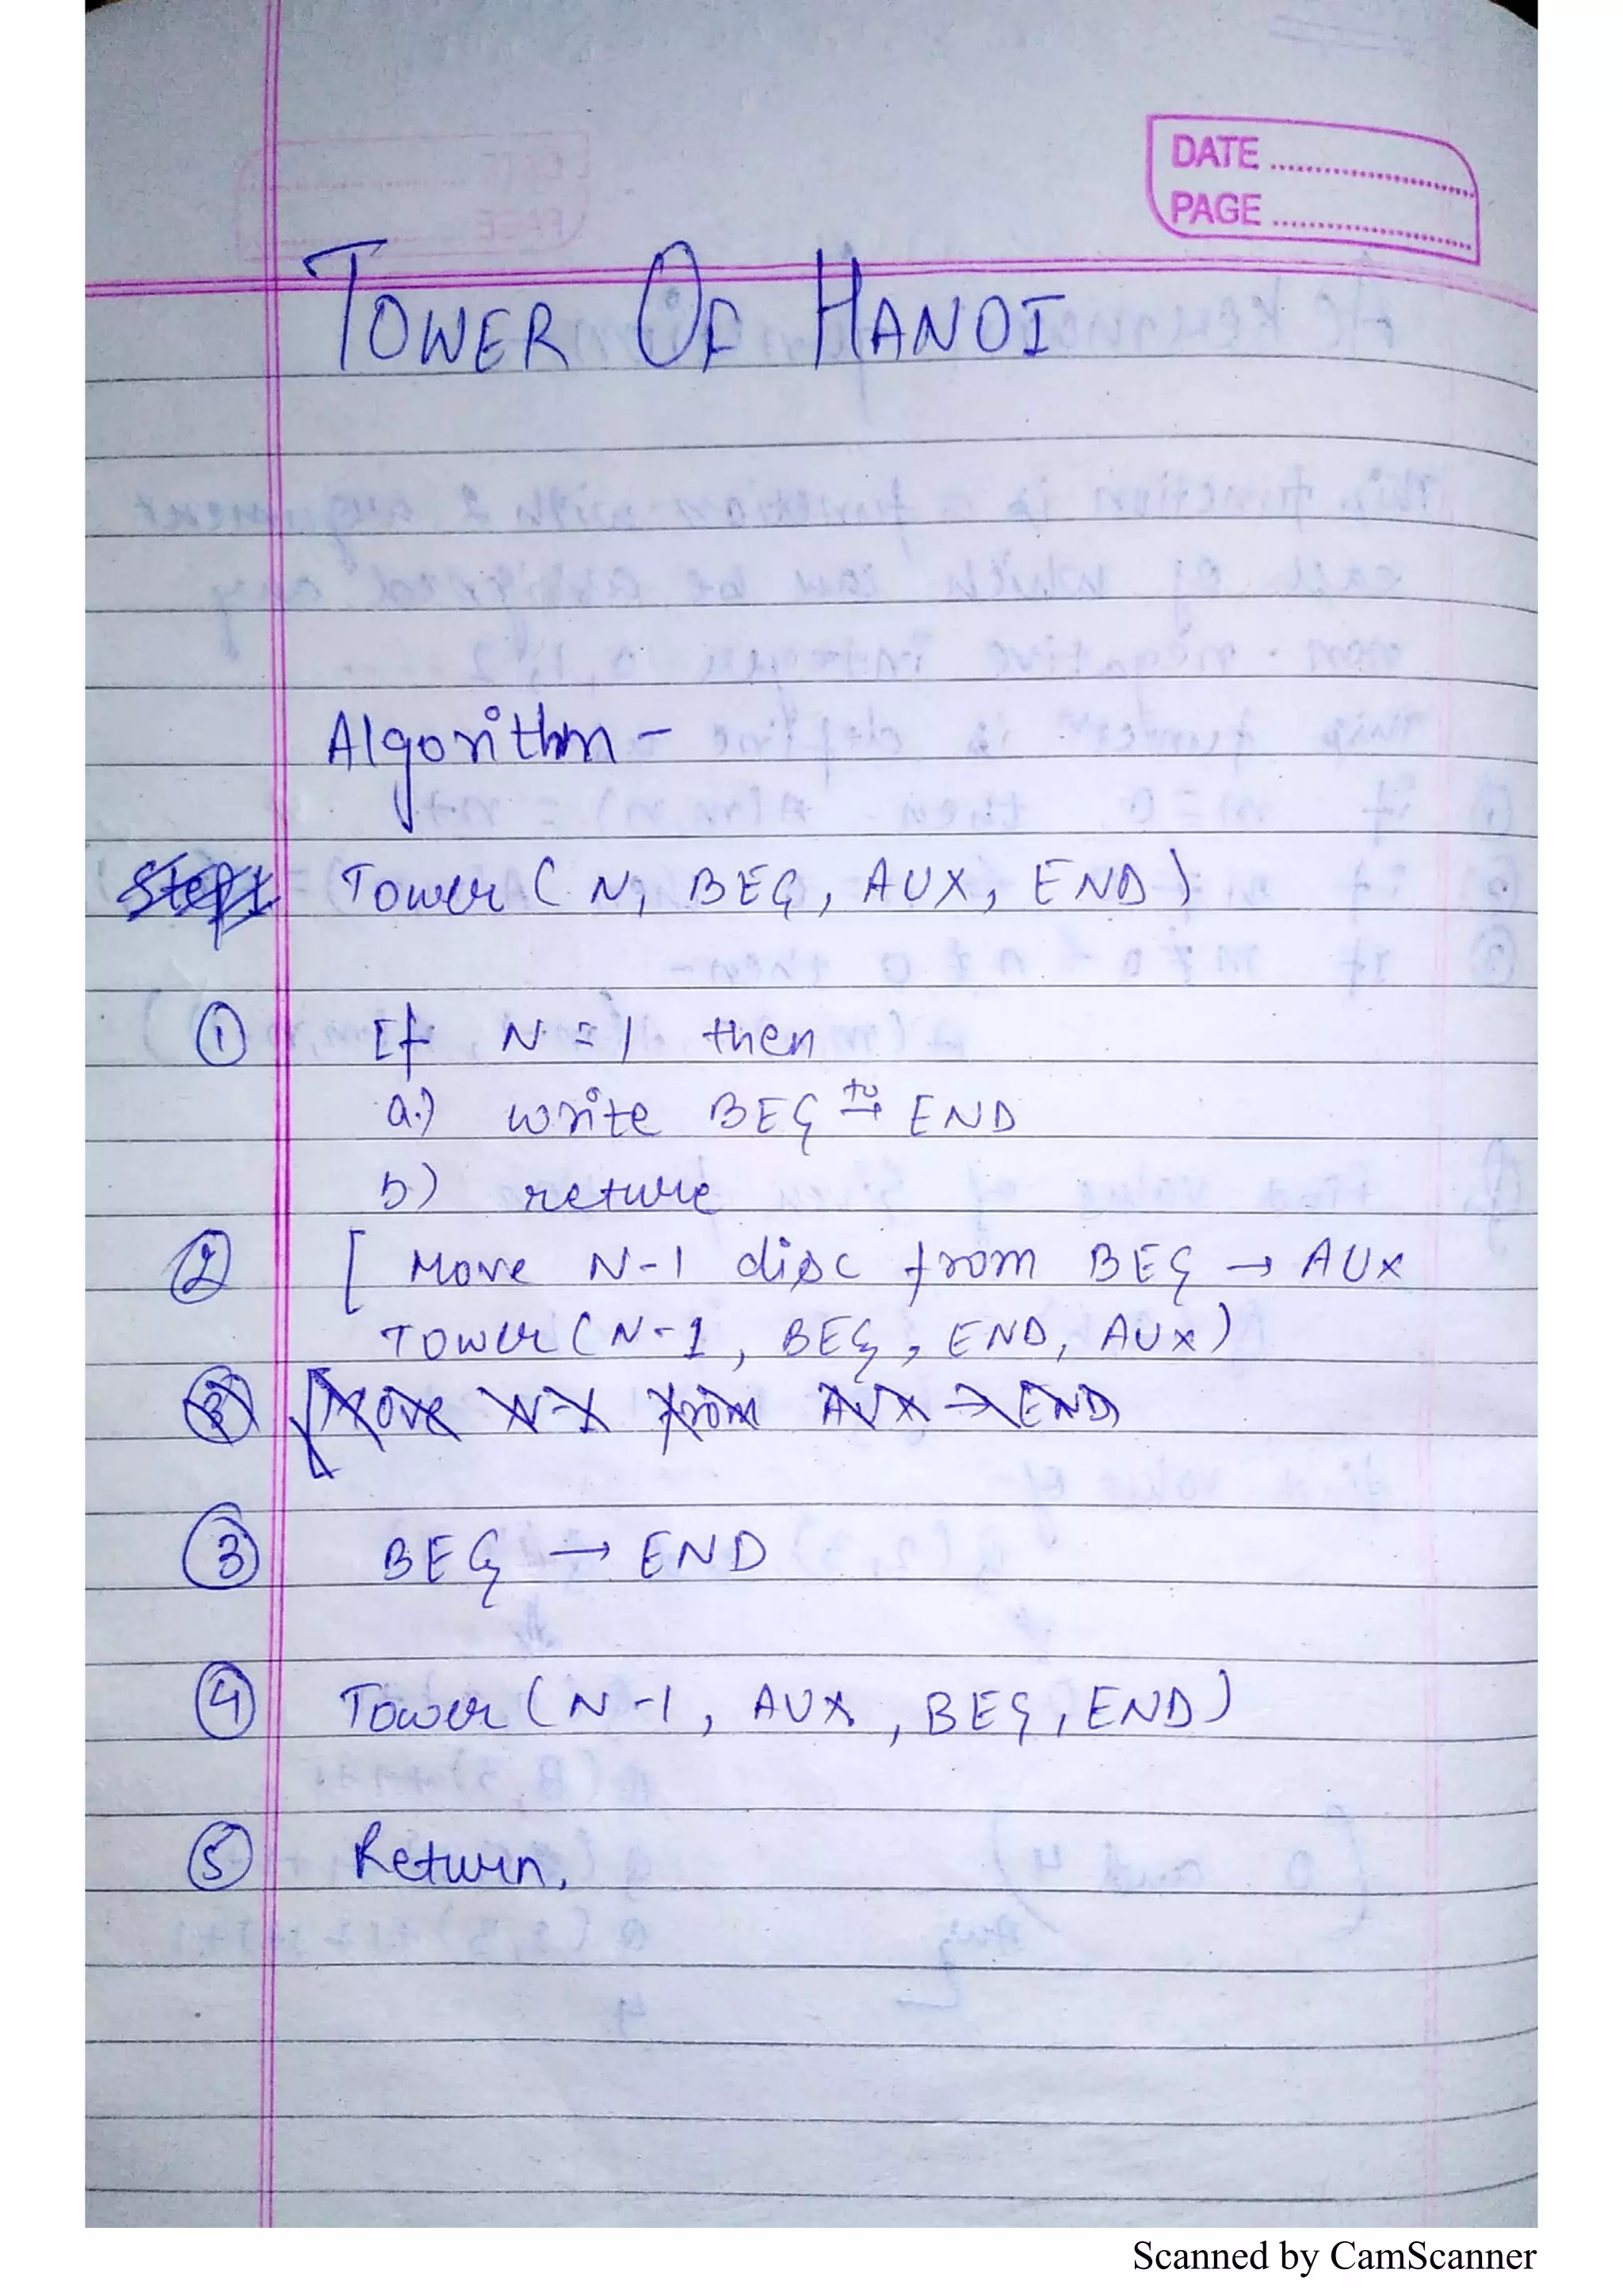 DATE ........................
PAGE ........................
TOWER OF HANOI
Algorithm -
Step1 Tower ( N, BEG, AUX, END )
① If N = 1 then
a.) write BEG to → END
b) returre
② [ Move N-1 disc from BEG → AUX
TOWER ( N-1 , BEG , END, AUX )
③ [ Move N-1 from AUX → END
③ BEG → END
④ Tower ( N-1 , AUX , BEG , END )
⑤ Return.
Scanned by CamScanner